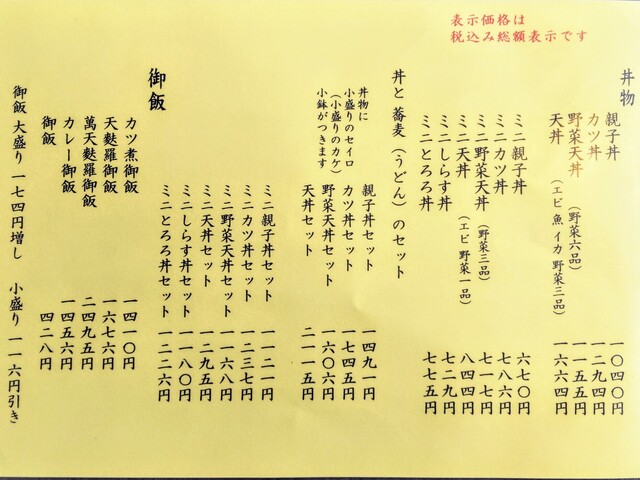 表示価格は
税込み総額表示です
丼物
親子丼 一〇四〇円
カツ丼 一二九四円
野菜天丼 (野菜六品) 一一五五円
天丼 (エビ 魚 イカ 野菜三品) 一六六四円
ミニ親子丼 六七〇円
ミニカツ丼 七八六円
ミニ野菜天丼 (野菜三品) 七一七円
ミニ天丼 (エビ 野菜一品) 八四四円
ミニしらす丼 七二九円
ミニとろろ丼 七七五円
丼と蕎麦(うどん)のセット
丼物に
小盛りのセイロ
(小盛りのカケ)
小鉢がつきます
親子丼セット 一四九一円
カツ丼セット 一七四五円
野菜天丼セット 一六〇六円
天丼セット 二一一五円
ミニ親子丼セット 一一二一円
ミニカツ丼セット 一二三七円
ミニ野菜天丼セット 一一六八円
ミニ天丼セット 一二九五円
ミニしらす丼セット 一一八〇円
ミニとろろ丼セット 一二二六円
御飯
カツ煮御飯 一四一〇円
天麩羅御飯 一六七六円
萬天麩羅御飯 二四九五円
カレー御飯 一四五六円
御飯 四二八円
御飯 大盛り 一七四円増し 小盛り 一一六円引き